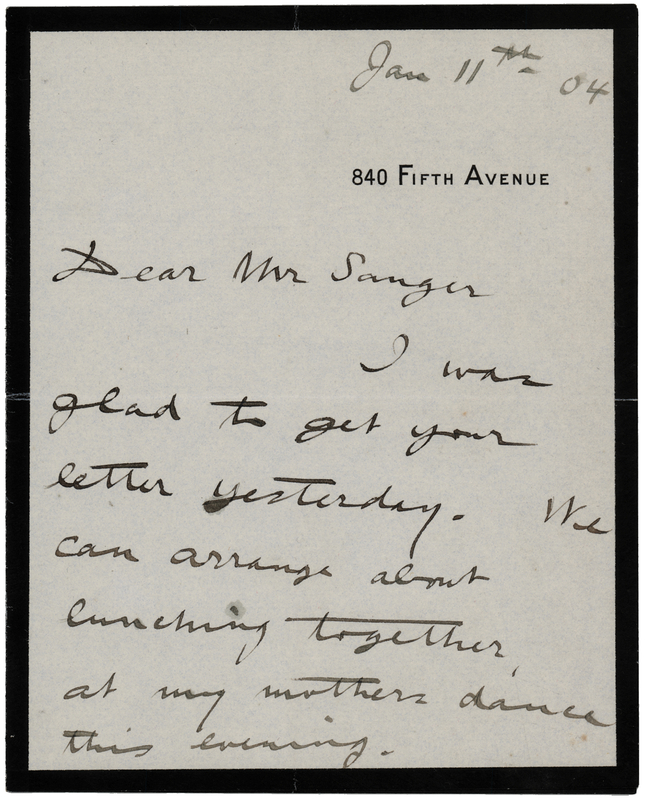 Jan 11th 04
840 Fifth Avenue
Dear Mr Sanger
I was
glad to get your
letter yesterday. We
can arrange about
lunching together,
at my mothers dance
this evening.